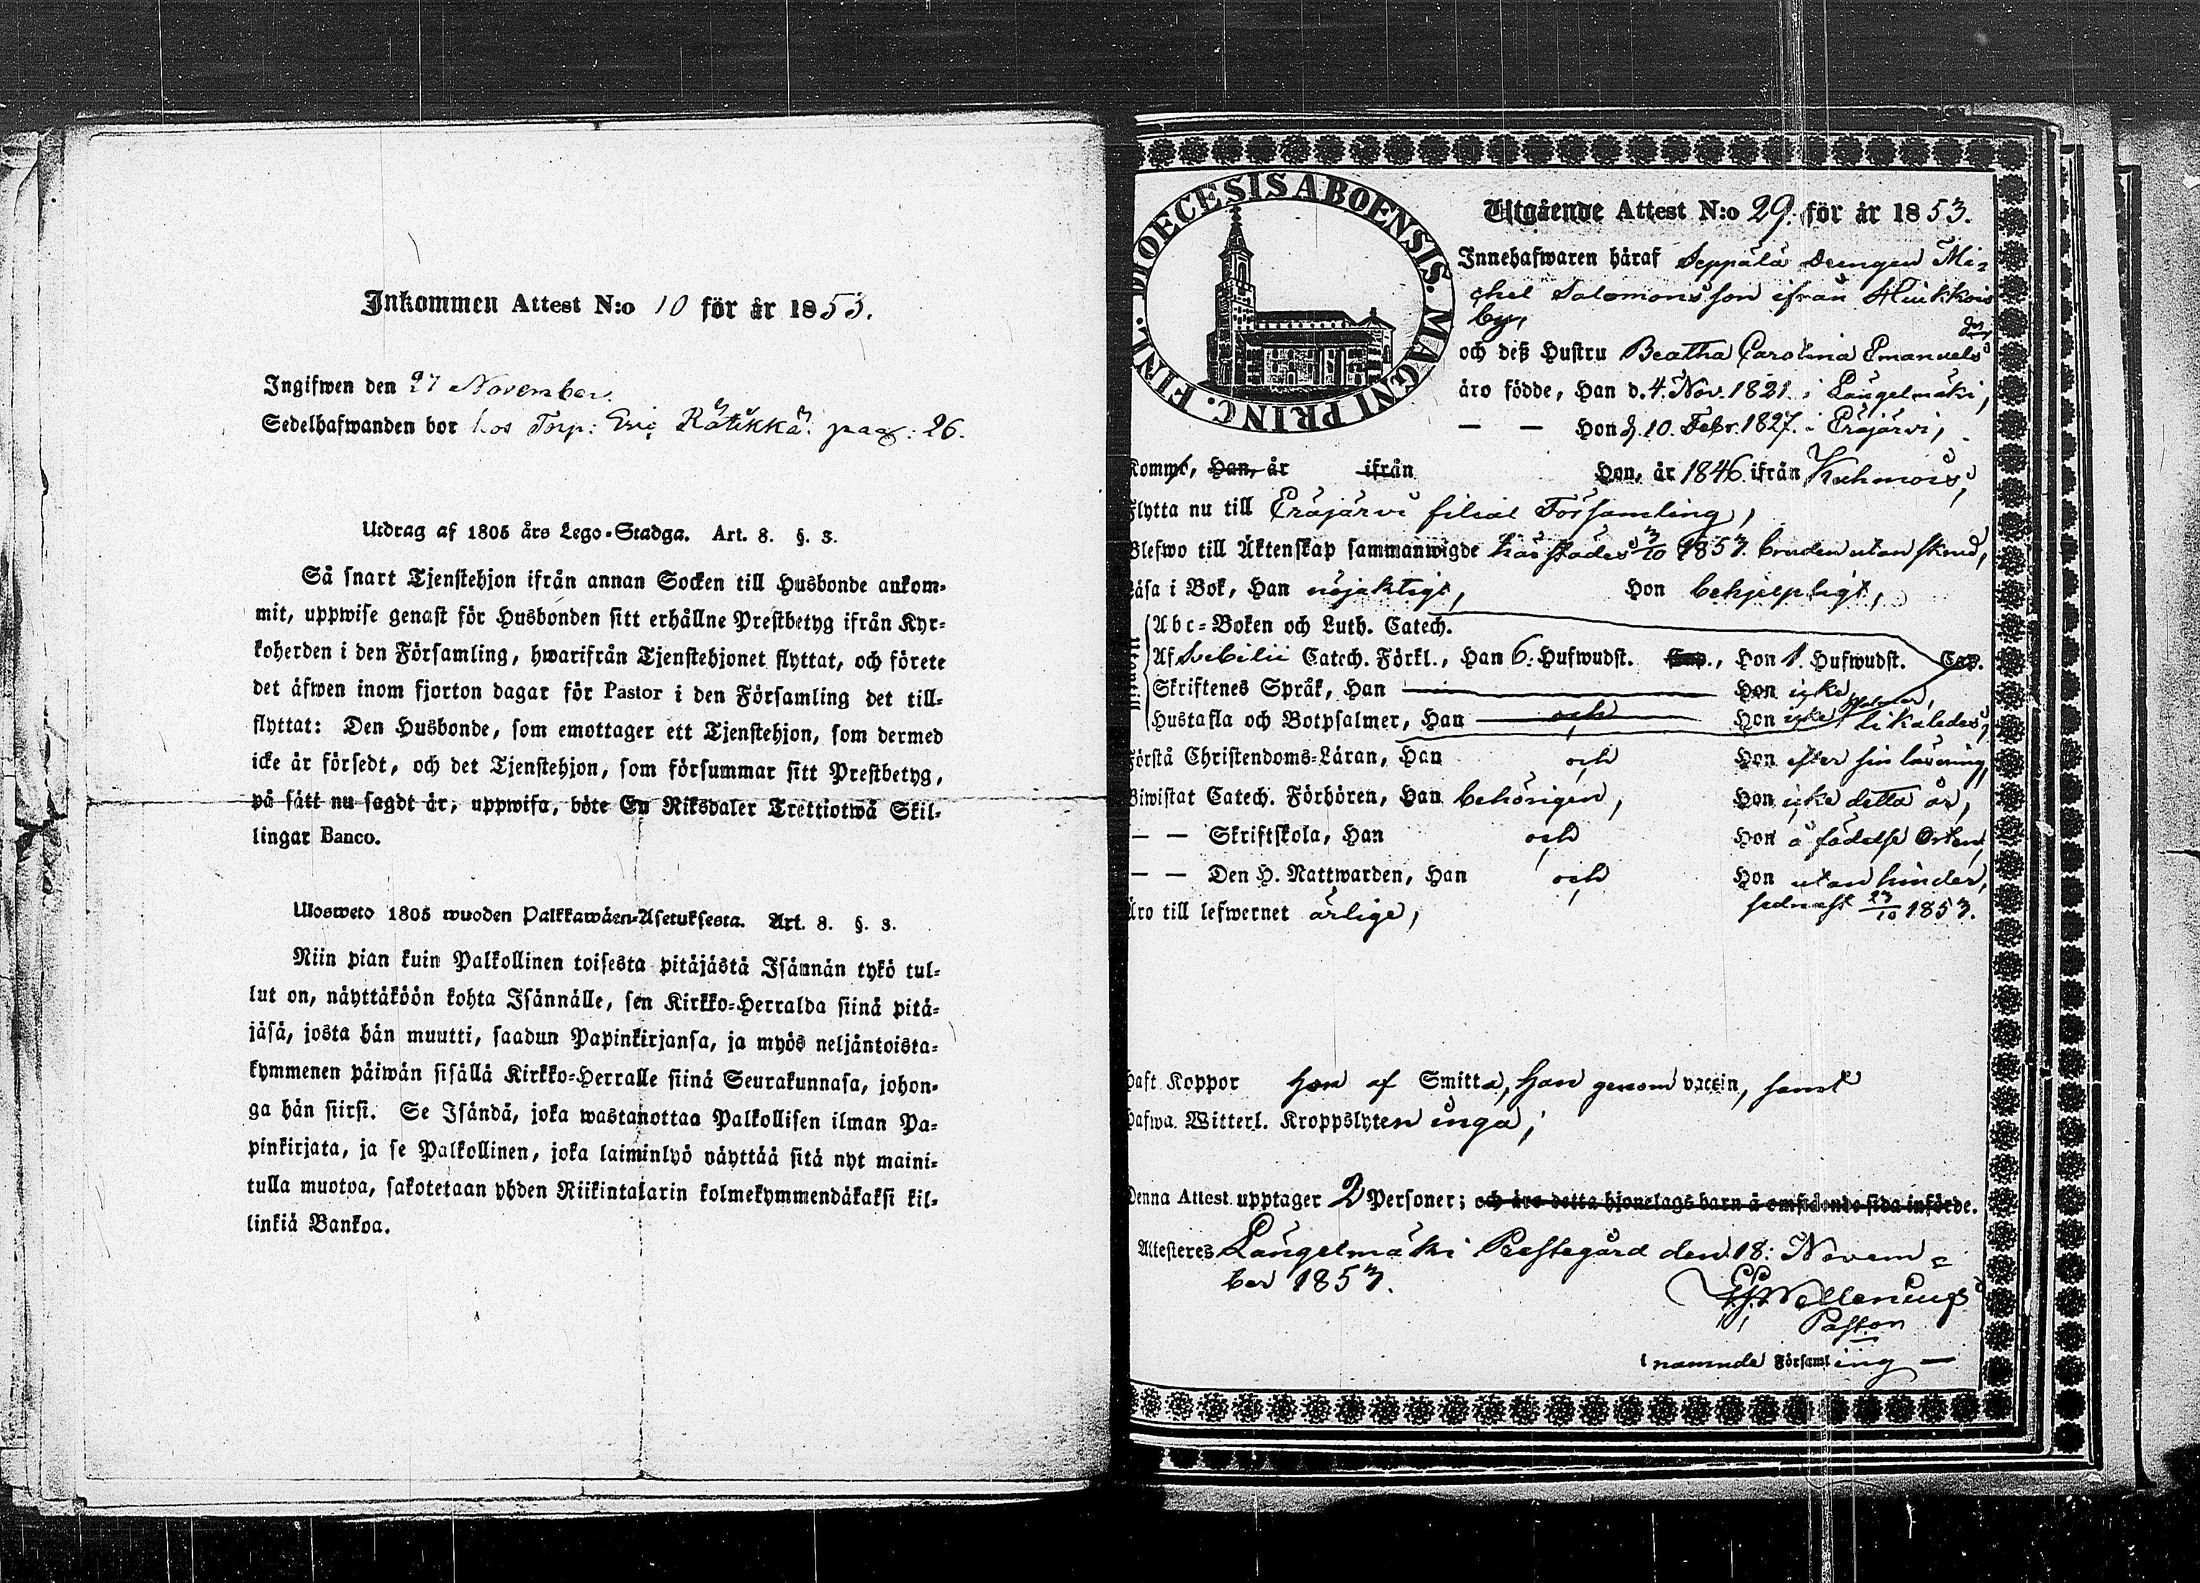 Inkommen Attest N:o 10 för år 1853.
Ingifwen den 27 November.
Sedelhafwanden bor hos Torp: Eric Rätikkä. pag: 26.
Utdrag af 1805 års Lego-Stadga. Art. 8. §. 3.
Så snart Tjenstehjon ifrån annan Socken till Husbonde ankom-
mit, uppwise genast för Husbonden sitt erhållne Prestbetyg ifrån Kyr-
koherden i den Församling, hwarifrån Tjenstehjonet flyttat, och förete
det äfwen inom fjorton dagar för Pastor i den Församling det till-
flyttat: Den Husbonde, som emottager ett Tjenstehjon, som dermed
icke är försedt, och det Tjenstehjon, som försummar sitt Prestbetyg,
på sätt nu sagdt är, uppwisa, böte En Riksdaler Trettiotwå Skil-
lingar Banco.
Ulosweto 1805 wuoden Palkkawäen-Asetuksesta. Art. 8. §. 3.
Niin pian kuin Palkollinen toisesta pitäjästä Isännän tykö tul-
lut on, näyttäköön kohta Isännälle, sen Kirkko-Herralda siinä pitä-
jäsä, josta hän muutti, saadun Papinkirjansa, ja myös neljäntoista-
kymmenen päiwän sisällä Kirkko-Herralle siinä Seurakunnasa, johon-
ga hän siirsi. Se Isändä, joka wastanottaa Palkollisen ilman Pa-
pinkirjata, ja se Palkollinen, joka laiminlyö näyttää sitä nyt maini-
tulla muotoa, sakotetaan yhden Riikintalarin kolmekymmendäkaksi kil-
linkiä Bankoa.
DIOECESIS ABOENSIS. MAGNI PRINC. FINL.
Utgående Attest N:o 29. för år 1853.
Innehafwaren häraf Seppälä drengen Mi-
chel Salomonsson ifrån Hiukkois
by,
och deß Hustru Beatha Carolina Emanuels dr
äro födde, Han d. 4. Nov. 1821. i Längelmäki,
— — Hon d. 10. Febr. 1827. i Eräjärvi,
Kommo, Han, år ifrån Hon, år 1846 ifrån Kuhmois,
Flytta nu till Eräjärvi filial Församling,
Blefwo till Äktenskap sammanwigde härstädes 3/10 1853. bruden utan skrud,
Läsa i Bok, Han nöjaktigt, Hon behjelpligt,
Abc-Boken och Luth. Catech.
Af Svebilii Catech. Förkl., Han 6. Hufwudst. Cap., Hon 1. Hufwudst. Cap.
Skriftenes Språk, Han — Hon icke
Hustafla och Botpsalmer, Han och Hon icke likaledes,
Förstå Christendoms-Läran, Han och Hon efter sin läsning,
Biwistat Catech. Förhören, Han behörigen, Hon icke detta år,
— — Skriftskola, Han och Hon å födelse Orten,
— — Den H. Nattwarden, Han och Hon utan hinder,
sednast 23/10 1853.
Äro till lefwernet ärlige,
Haft Koppor hon af Smitta, han genom vaccin, samt
Hafwa Witterl. Kroppslyten inga;
Denna Attest upptager 2 Personer; och äro detta hjonelags barn å omstående sida införde.
Attesteres Längelmäki Prestegård den 18: Novem-
ber 1853.
Pastor
i nämnde Församling —